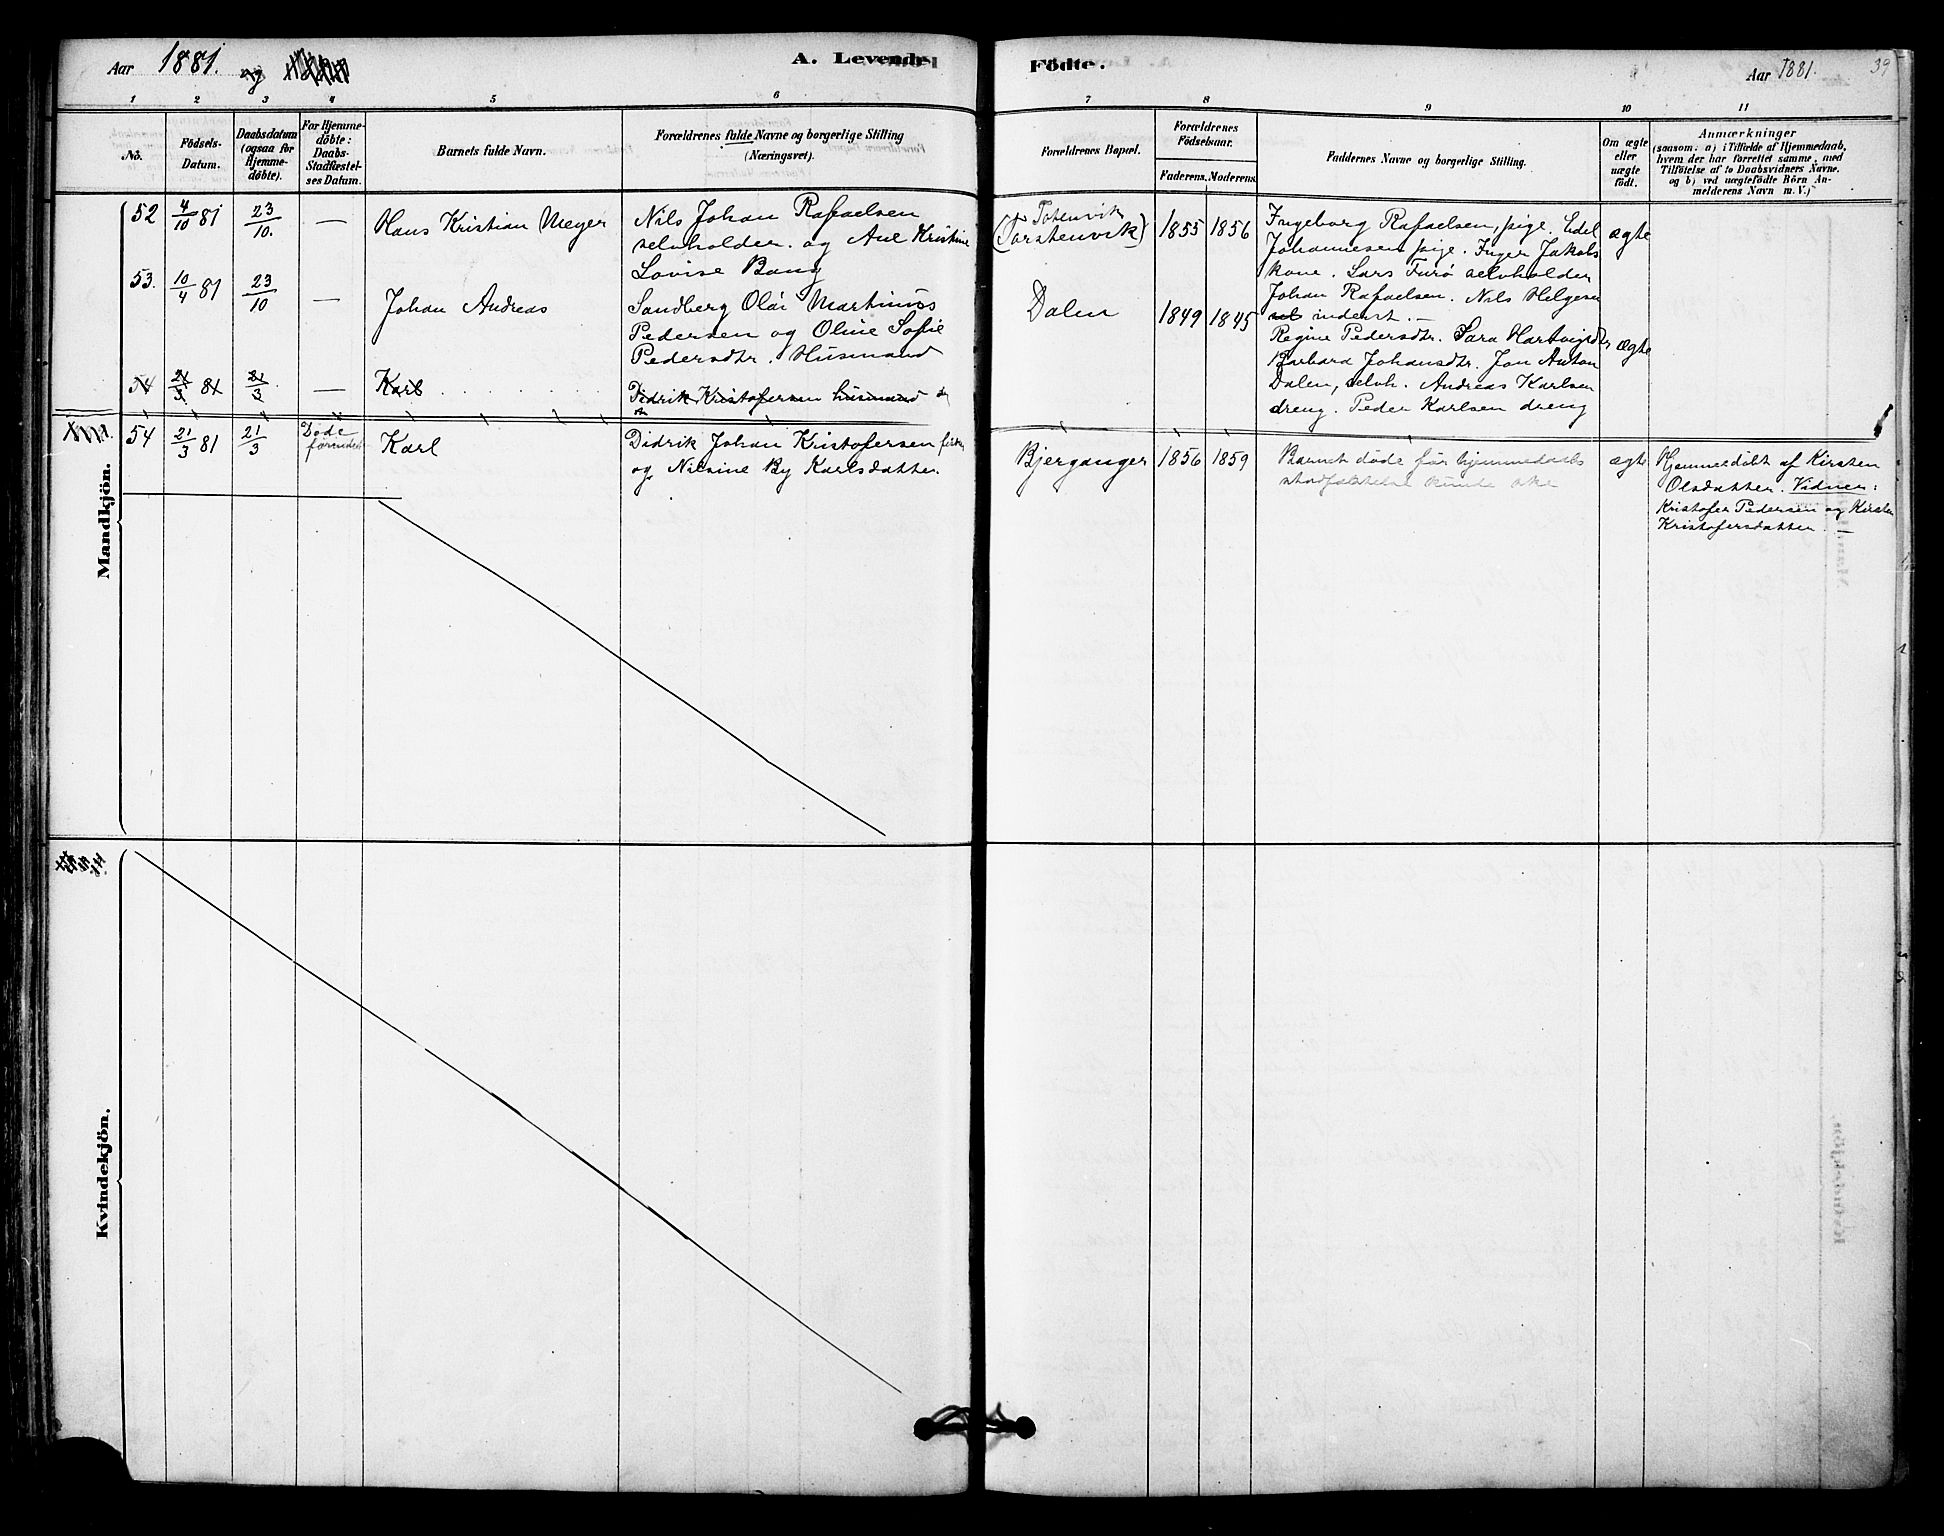 Aar 1881. og
A. Levende
1 2 3 4 5 6
No.
Födsels-
Datum.
Daabsdatum
(ogsaa for
Hjemme-
döbte).
For Hjemme-
döbte:
Daabs-
Stadfæstel-
ses Datum.
Barnets fulde Navn.
Forældrenes fulde Navne og borgerlige Stilling
(Næringsvei).
Mandkjön.
52 4/10 81 23/10. — Hans Kristian Meyer
Nils Johan Rafaelsen
selvholder. og Ane Kristine
Lovise Bang
53. 10/4 81 23/10 — Johan Andreas
Sandberg Olai Martinus
Pedersen og Oline Sofie
Pedersdtr. Husmand
54 21/3 81 21/3 — Karl
Didrik Kristofersen husmand
54 21/3 81 21/3 Døde
forinden
Karl
Didrik Johan Kristofersen
og Nilsine By Karlsdatter
Kvindekjön.
Födte.
Aar 1881. 39
7 8 9 10 11
Forældrenes Bopæl.
Forældrenes
Födselsaar.
Faderens. Moderens.
Faddernes Navne og borgerlige Stilling.
Om ægte
eller
uægte
födt.
Anmærkninger
(saasom: a) i Tilfælde af Hjemmedaab,
hvem der har forrettet samme, med
Tilföielse af to Daabsvidners Navne,
og b) ved uægtefödte Börn An-
melderens Navn m. V.)
Totenvik
(Torstenvik) 1855 1856
Ingeborg Rafaelsen, pige. Edel
Johannesen pige. Inger Jakobs
kone. Lars Furø selvholder
Johan Rafaelsen. Nils Helgesen
inderst. —
ægte
Dalen 1849 1845
Regine Pedersdtr. Sara Hartvigsdtr
Barbara Johansdtr. Jon Anton
Dalen, selvh. Andreas Karlsen
dreng. Peder Karlsen dreng
ægte
Bjerganger 1856 1859
Barnet døde før hjemmedaabs
stadfæstelse kunde ske
ægte
Hjemmedøbt af Kirsten
Olsdatter. Vidner:
Kristofer Pedersen og Kirsten
Kristofersdatter. —